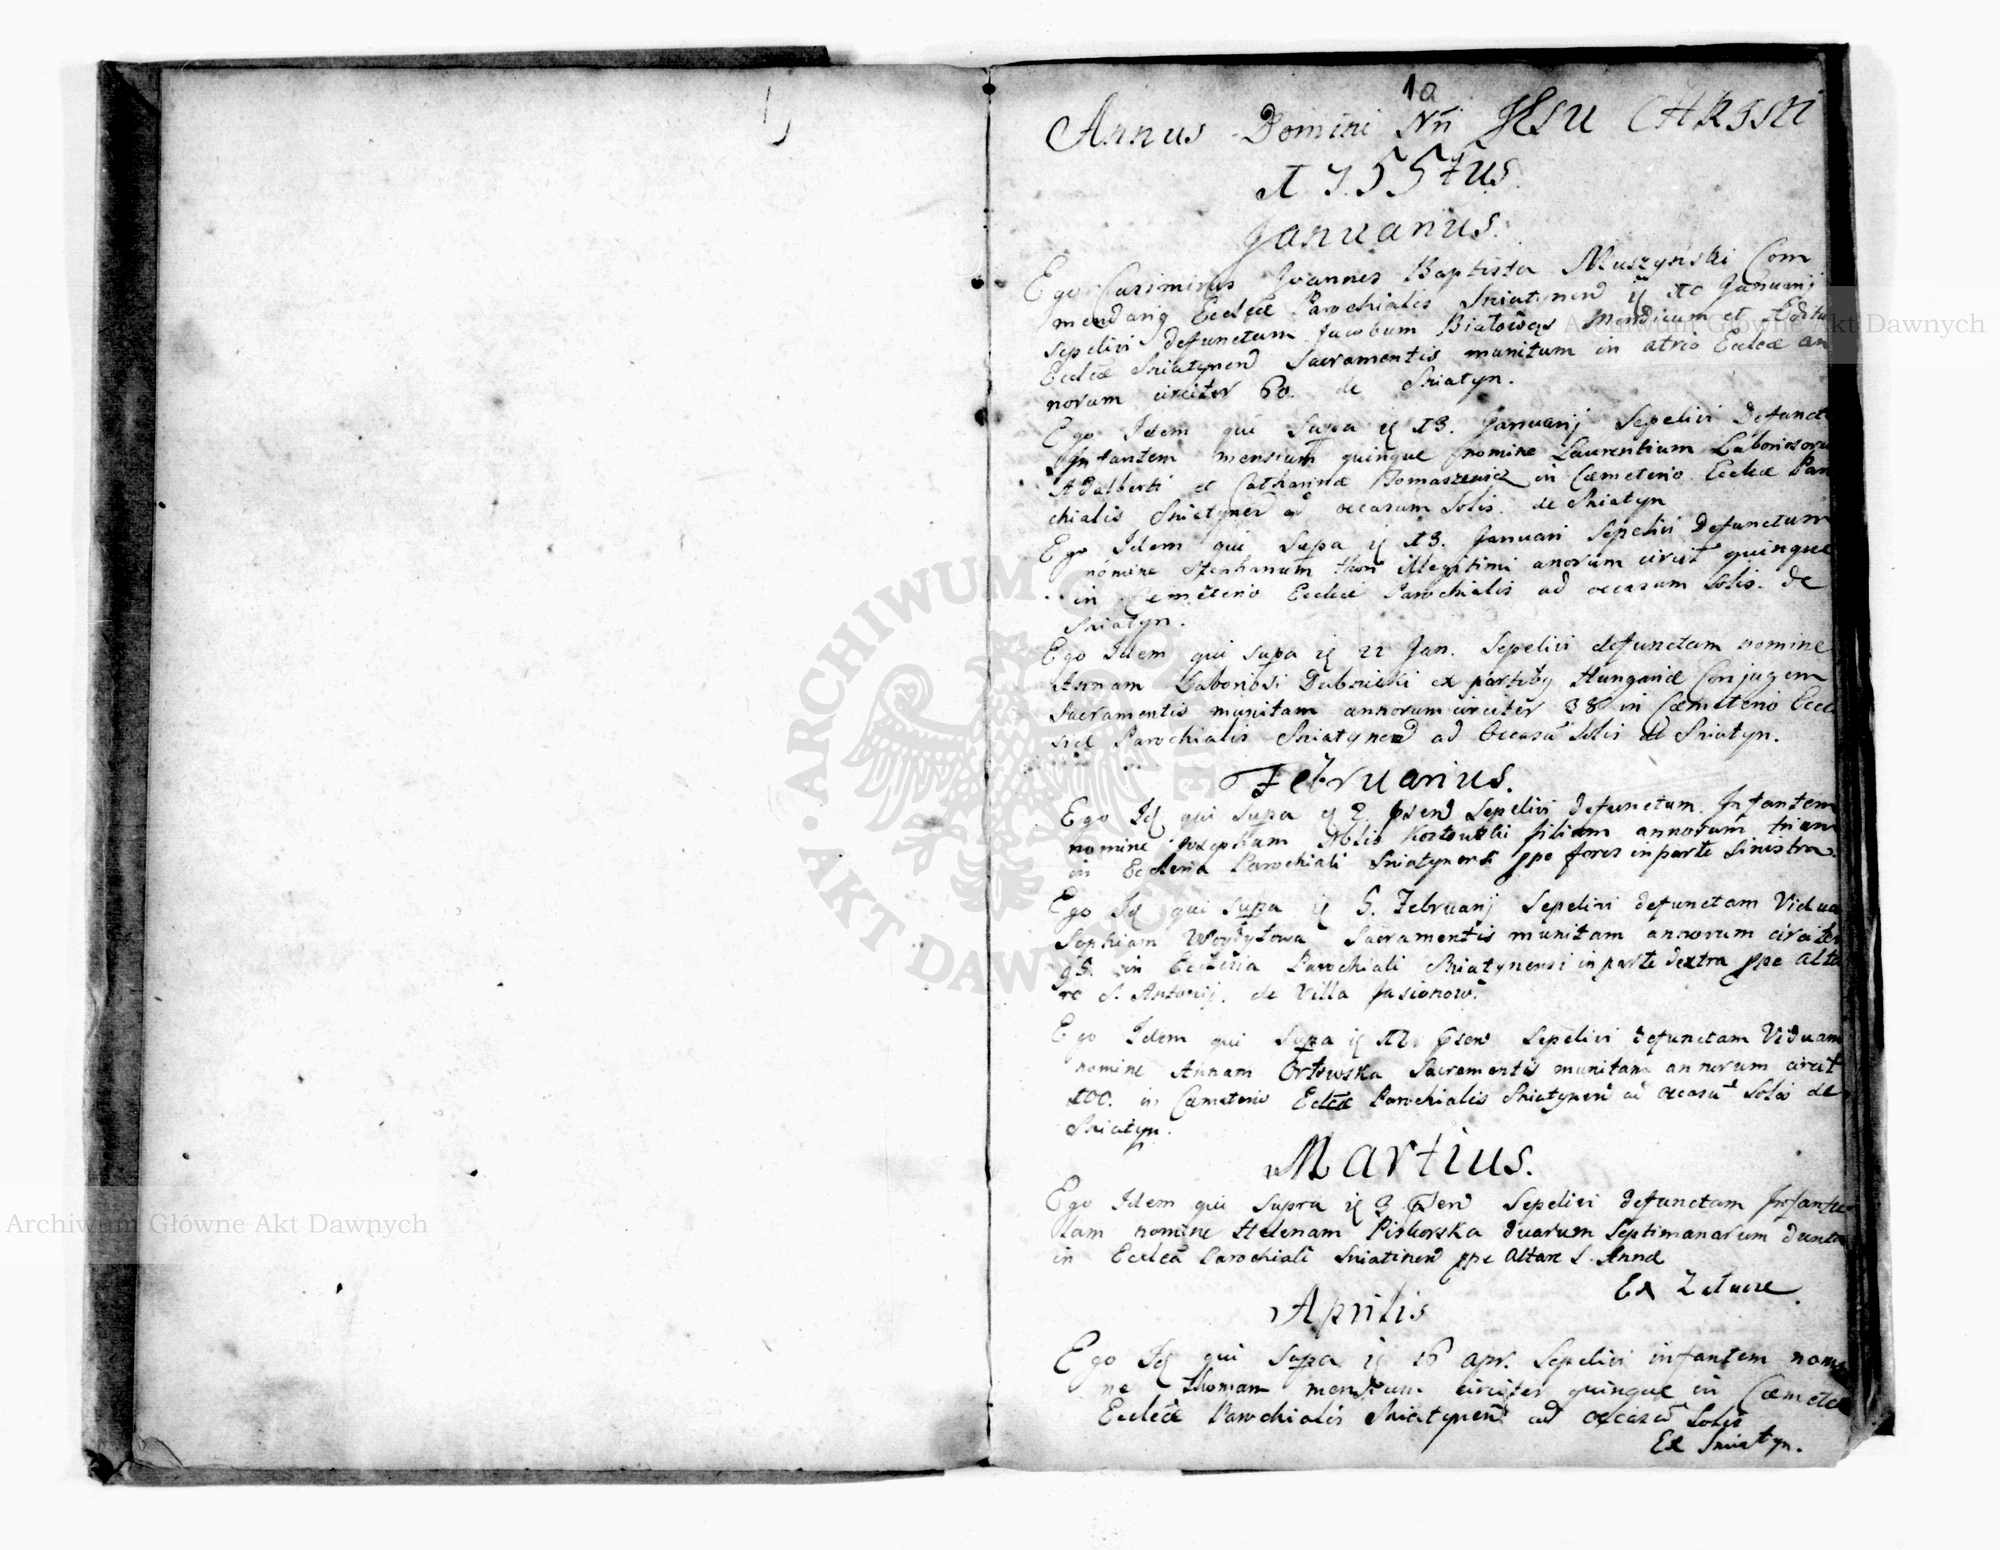 1a
Annus Domini Nri JESU CHRISTI
1755tus.
Januarius.
Ego Casimirus Joannes Baptista Muszyński Com
mendarig Eccłæ Parochialis Sniatynen 10 Januarij
sepelivi defunctum Jacobum Mendicum et
Ecclæ Sniatynen Sacramentis munitum in atrio Ecclæ an
norum circiter 60. de Sniatyn.
Ego Idem qui Supa 13. Januarij Sepelivi defunct
Infantem mensium quinque nomine Laurentium Laboriosorum
Adalberti et Catharinæ Tomaszewicz in Cœmeterio Ecclæ Paro
chialis Sniatynen ad occasum Solis. de Sniatyn
Ego Idem qui Supa 13. Januari Sepelivi Defunctum
nomine Stephanum Thori illegitimi anorum circit quinque
in Cemeterio Ecclæ Parochialis ad occasum Solis. de
Sniatyn.
Ego Idem qui supa 22 Jan. Sepelivi defunctam nomine
Annam Laboriosi Dubnicki ex partibg Hungariæ Conjugem
Sacramentis munitam annorum circiter 38 in Cœmeterio Eccle
siæ Parochialis Sniatynen ad Occasū Solis de Sniatyn.
Februarius.
Ego Id qui supa 2. psen Sepelivi defunctum Infantem
nomine Josephum Nblis filium annorum trium
in Ecclesia Parochiali Sniatynensi ppe fores in parte sinistra.
Ego Id qui supa 5. Februarij Sepelivi defunctam Vidua
Sophiam Woydyłowa Sacramentis munitam annorum circiter
95. in Ecclesia Parochiali Sniatynensi in parte dextra ppe Alta
re S. Antonij. de Villa Jasionow.
Ego Idem qui Supa 12. psen Sepelivi defunctam Viduam
nomine Annam Orłowska Sacramentis munitam annorum circit
100. in Cœmeterio Ecclæ Parochialis Sniatynen ad occasū Solis de
Sniatyn.
Martius.
Ego Idem qui Supra 3 psen Sepelivi defunctam Infantu
lam nomine Helenam Piskorska duarum Septimanarum
in Ecclœa Parochiali Sniatinen ppe Altare S. Annæ
Ex
Aprilis
Ego Id qui Supa 16 apr. Sepelivi infantem nomi
ne Thomam mensium circiter quinque in Cœmeter
Ecclæ Parochialis Sniatynen ad occasū Solis
Ex Sniatyn.
ARCHIWUM GŁÓWNE AKT DAWNYCH
Archiwum Główne Akt Dawnych
Archiwum Główne Akt Dawnych